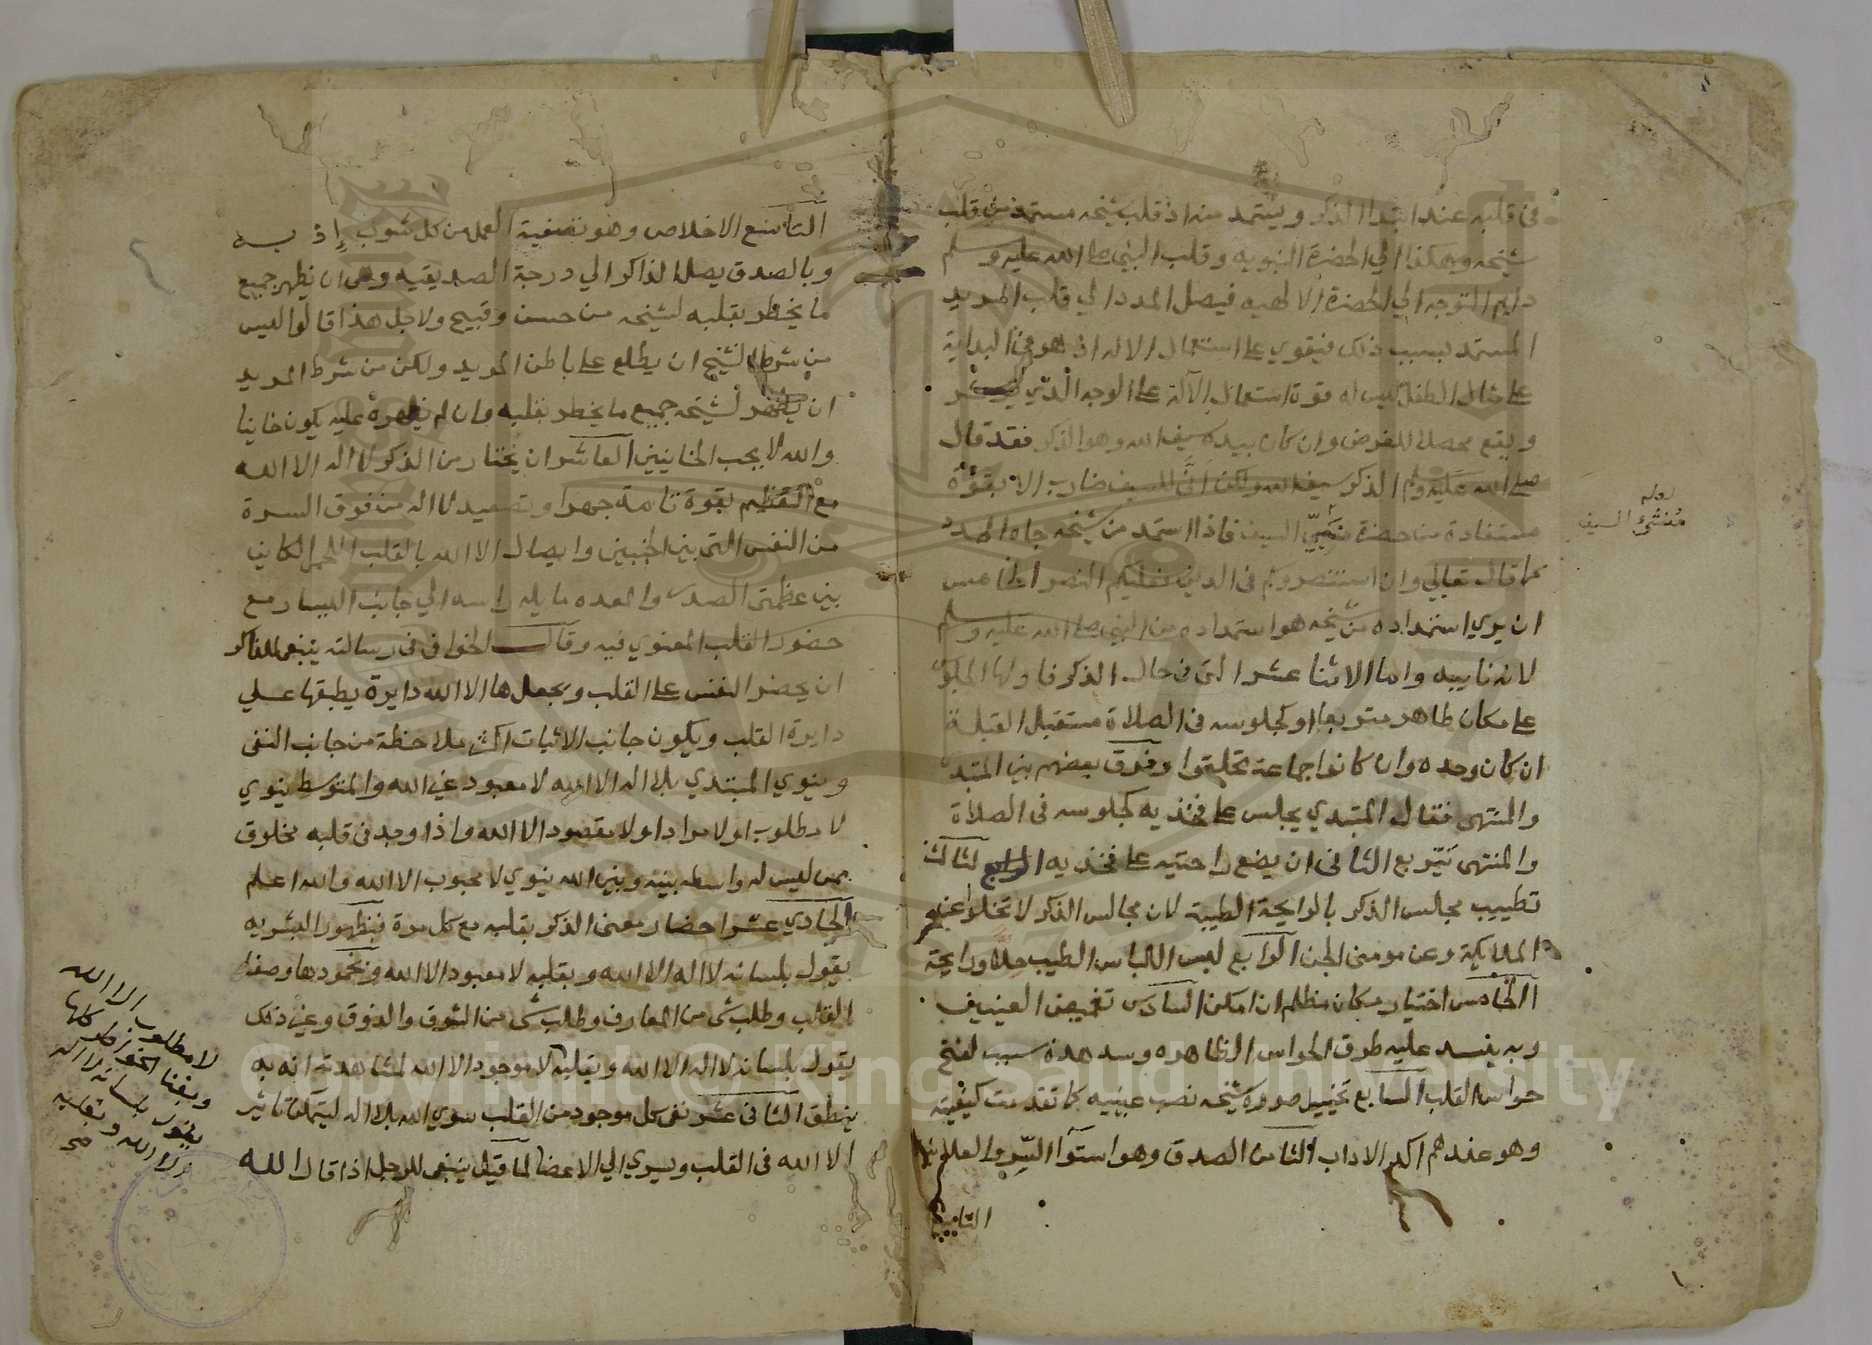 في قلبه عند ابتدا الذكر ويستمد منه اذ قلب شيخه مستمد من قلب
شيخه وهكذا الي الحضرة النبويه وقلب النبي صلى الله عليه وسلم
دايم التوجه الي الحضرة الالهيه فيصل المدد الي قلب المريد
المستمد بسبب ذلك فيقوي على استعمال الاله اذ هو في البداية
على مثال الطفل ليس له قوة استعمال الآلة على الوجه الذي
ويقع محصلا للغرض وان كان بيده سيف الله وهو الذكر فقد قال
صلى الله عليه ولم الذكر سيف الله ولكن انى للسيف ضارب الا بقوة
مستفادة من حضرة السيف فاذا استمد من شيخه جاه المدد
كما قال تعالي وان استنصروكم في الدين فعليكم النصر الخامس
ان يري استمداده من شيخه هو استمداده من النبي صلى الله عليه وسلم
لانه نايبه واما الاثنا عشر التي في حال الذكر فاولها الجلوس
على مكان طاهر متربعا او كجلوسه في الصلاة مستقبل القبلة
ان كان وحده وان كانوا جماعة تحلقوا وفرق بعضهم بين المبتد
والمنتهى فقال المبتدي يجلس على فخذيه كجلوسه في الصلاة
والمنتهى يتربع الثاني ان يضع راحتيه على فخذيه الثالث
تطييب مجالس الذكر بالرايحة الطيبة لان مجالس الذكر لا تخلوا عن
الملايكة وعن مومني الجن الرابع لبس اللباس الطيب حلا ورايحة
الخامس اختيار مكان مظلم ان امكن السادس تغميض العينيين
وبه ينسد عليه طرق الحواس الظاهره وسد هذه سبب لفتح
حواس القلب السابع تخييل صورة شيخه نصب عينيه كما تقدمت كيفيته
وهو عندهم اكد الاداب الثامن الصدق وهو استوآ السر والعلانية
التاسع
لعله
منشئ السيف
التاسع الاخلاص وهو تصفية العمل من كل شوب إذ به
وبالصدق يصل الذاكر الي درجة الصديقيه وهى ان يظهر جميع
ما يخطر بقلبه لشيخه من حسن وقبيح ولاجل هذا قالوا ليس
من شرط الشيخ ان يطلع على باطن المريد ولكن من شرط المريد
ان يظهر لشيخه جميع ما يخطر بقلبه وان لم يظهره عليه يكون خاينا
والله لا يحب الخاينين العاشر ان يختار من الذكر لا اله الا الله
مع التعظيم بقوة تامة جهرا وتصعيد لا اله من فوق السرة
من النفس التى بين الجنبين وايصال الا الله بالقلب اللحمى الكاين
بين عظمتى الصدر والمعده مايلا راسه الي جانب اليسار مع
حضور القلب المعنوي فيه وقال الخوافي في رسالته ينبغى للذاكر
ان يحضر النفس على القلب ويجعل ها الا الله دايرة يطبقها على
دايرة القلب ويكون جانب الاثبات اكثر ملاحظة من جانب النفى
وينوي المبتدي بلا اله الا الله لا معبود غير الله والمتوسط ينوي
لا مطلوب او لا مراد او لا مقصود الا الله واذا وجد في قلبه مخلوق
ممن ليس له واسطه بينه وبين الله ينوي لا محبوب الا الله والله اعلم
الحادي عشر احضار معنى الذكر بقلبه مع كل مرة فبظهور البشريه
يقول بلسانه لا اله الا الله وبقلبه لا معبود الا الله وبخمودها وصفا
القالب وطلب شى من المعارف وطلب شى من الشوق والذوق وغير ذلك
يقول بلسانه لا اله الا الله وبقلبه لا موجود الا الله لمشاهدته انه به
ينطق الثاني عشر نفى كل موجود من القلب سوي الله بلا اله ليتمكن تاثير
الا الله في القلب ويسري الي الاعضا لما قيل ينبغى للرجل اذا قال الله
لا مطلوب الا الله
وبفنا الخواطر كلها
يقول بلسانه لا اله
الا الله وبقلبه
صح
Copyright © King Saud University